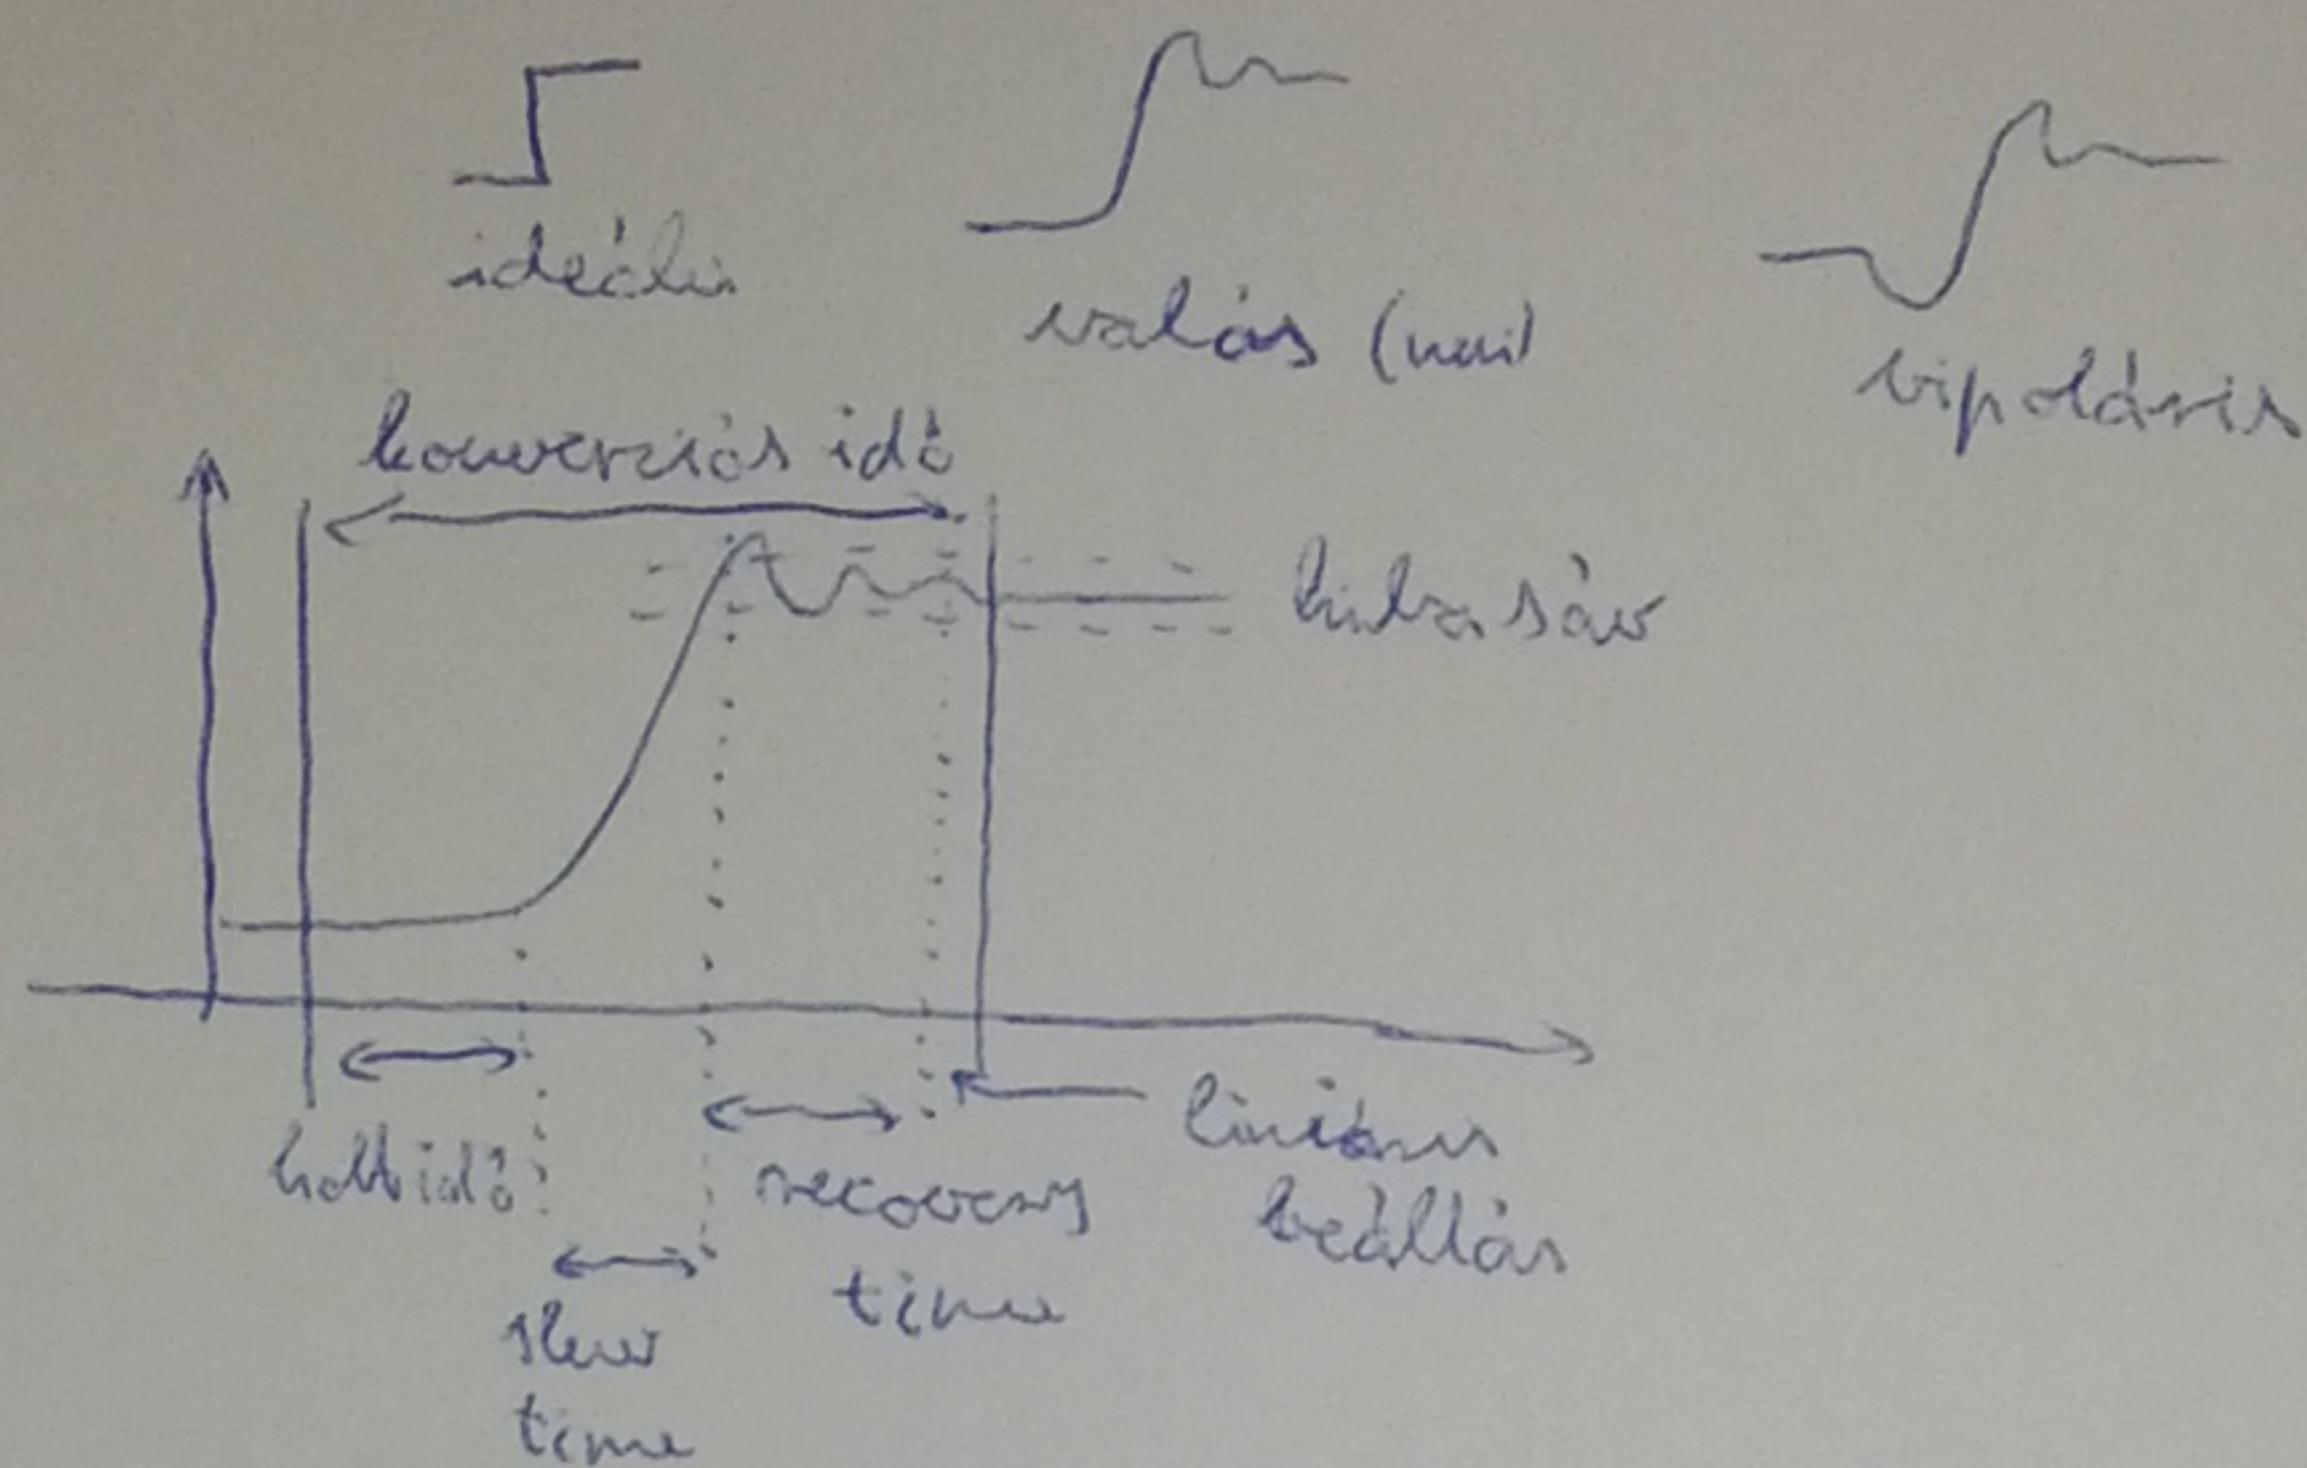 ideális
valós (uni)
bipoláris
konverziós idő
hibasáv
holtidő
slew
time
recovery
time
lineáris
beállás